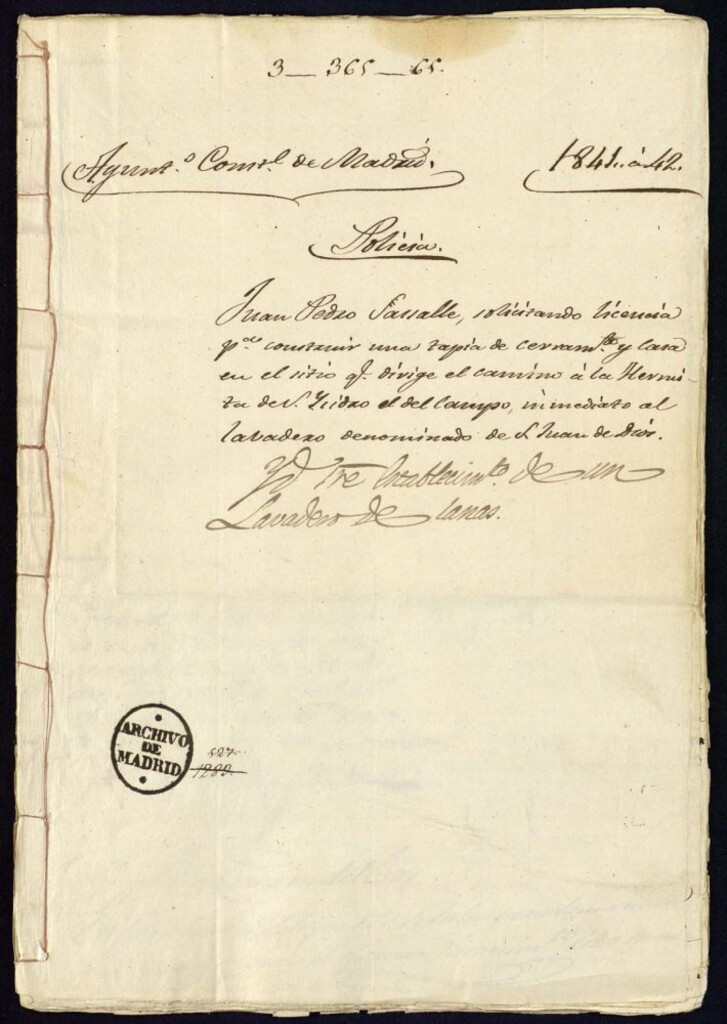 3 — 365 — 65.
Ayunt.º Const.l de Madrid.
1841. á 42.
Policia.
Juan Pedro Lassalle, solicitando licencia
p.ª construir una tapia de cerram.to y casa
en el sitio q.e dirige el camino á la Hermi-
ta de S. Ysidro el del Campo, inmediato al
lavadero denominado de S. Juan de Dios.
Yd. Tre Establecim.to de un
Lavadero de lanas.
ARCHIVO
DE
MADRID
127
1280